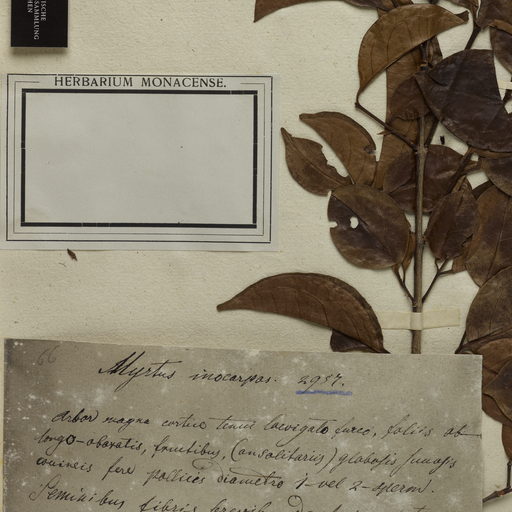 ISCHE
SAMMLUNG
HEN
HERBARIUM MONACENSE.
66
Myrtus inocarpos. 2957.
Arbor magna cortice tenui laevigato fusco, foliis ob-
longo-obovatis, fructibus, (an solitariis) globosis
fere pollicis diametro 1-vel 2-sperm.
Seminibus fibris